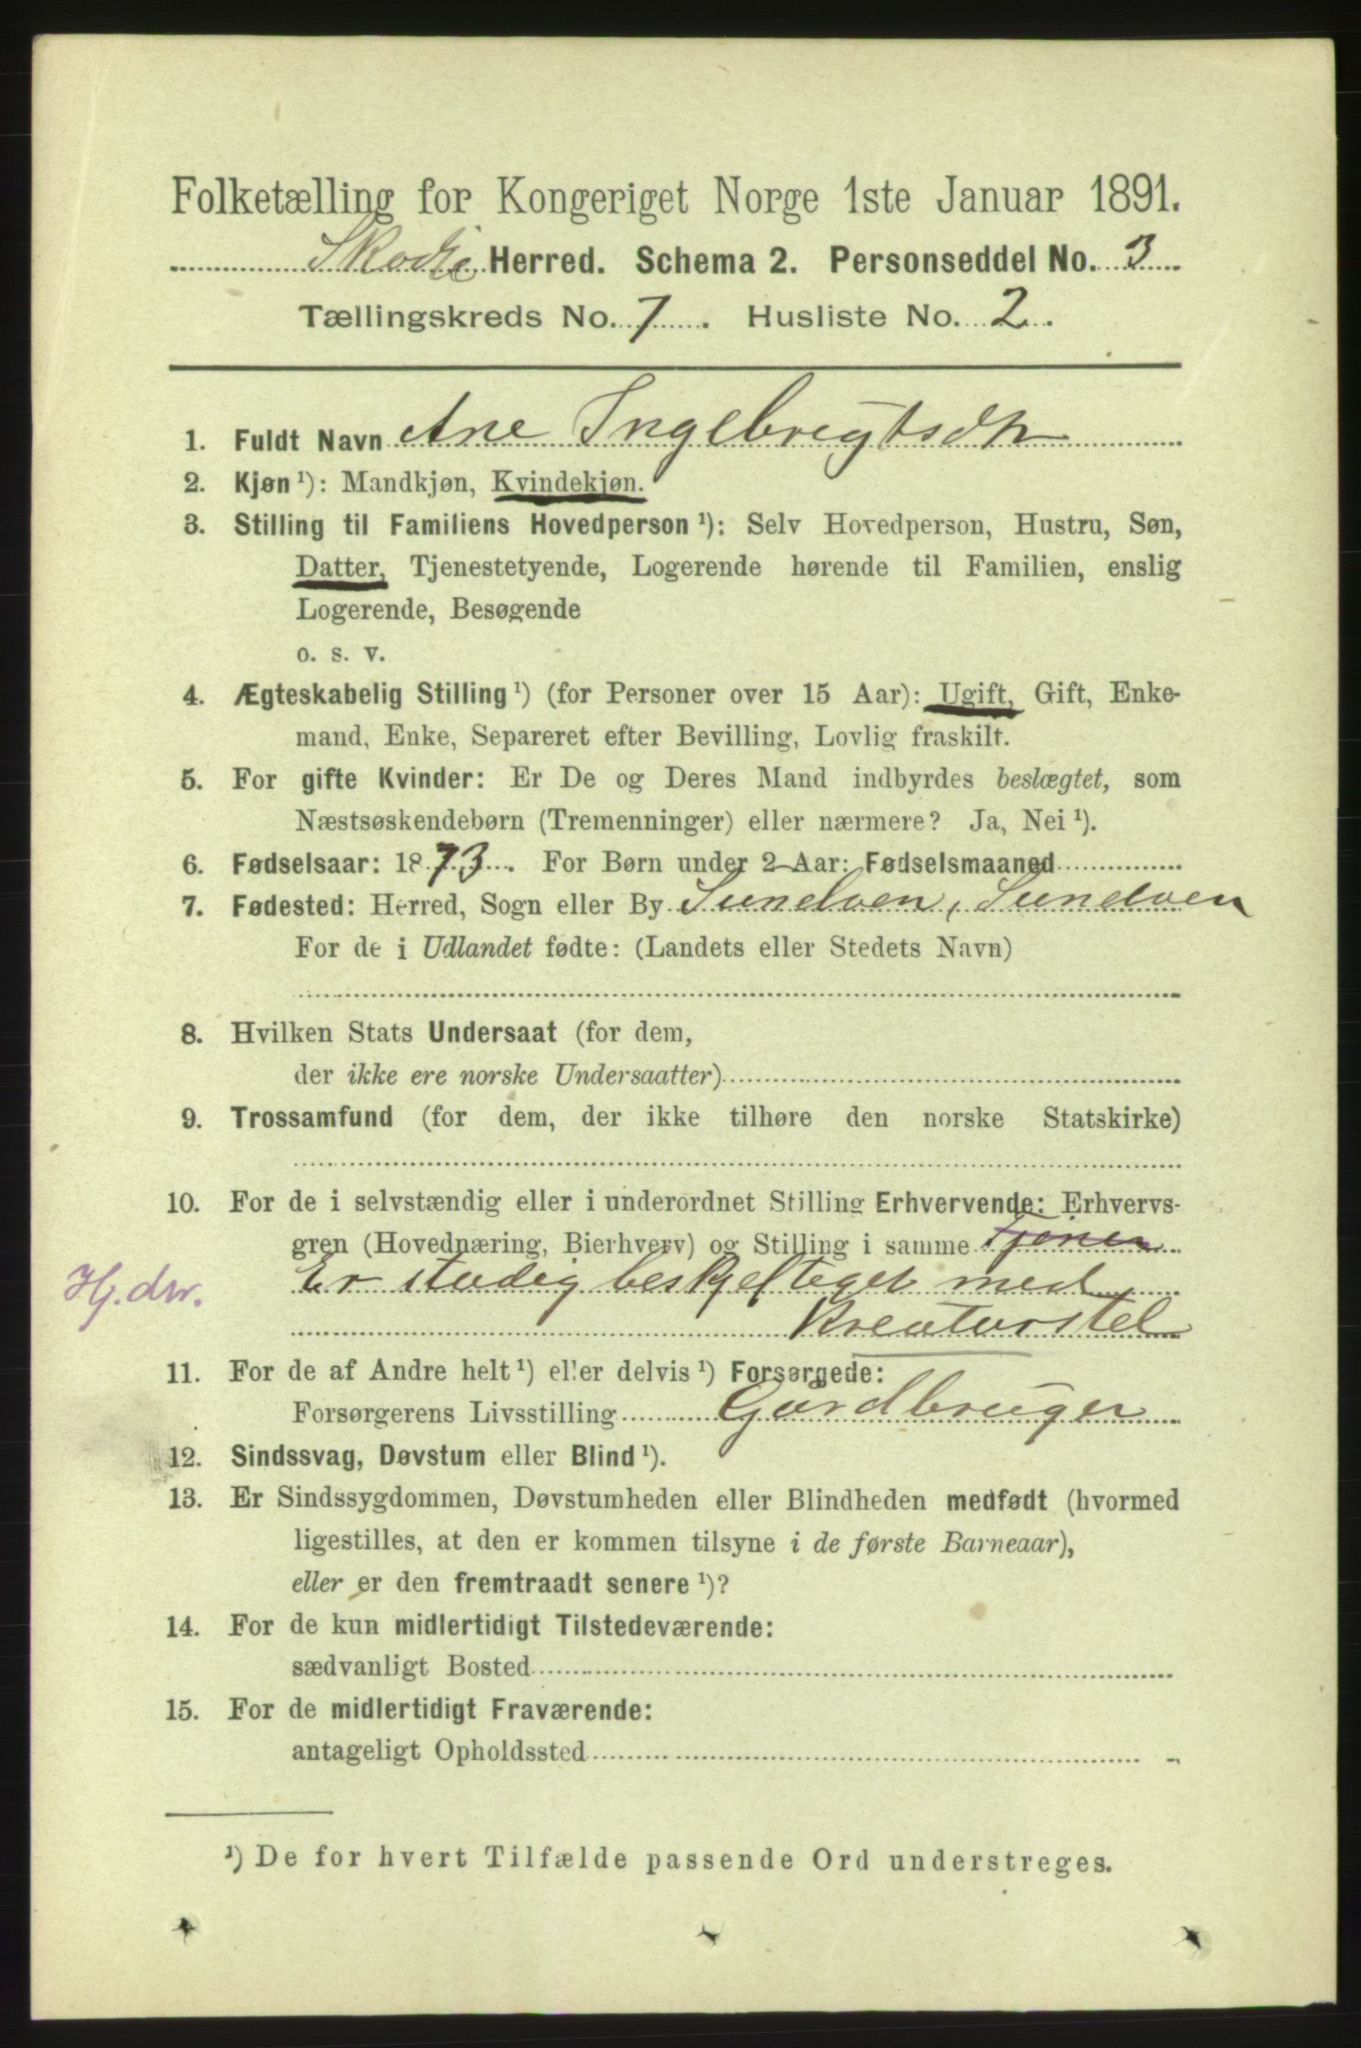 Folketælling for Kongeriget Norge 1ste Januar 1891.
Skodje Herred. Schema 2. Personseddel No. 3
Tællingskreds No. 7. Husliste No. 2.
1. Fuldt Navn Ane Ingebrigtsdtr
2. Kjøn ¹): Mandkjøn, Kvindekjøn.
3. Stilling til Familiens Hovedperson ¹): Selv Hovedperson, Hustru, Søn,
Datter, Tjenestetyende, Logerende hørende til Familien, enslig
Logerende, Besøgende
o. s. v.
4. Ægteskabelig Stilling ¹) (for Personer over 15 Aar): Ugift, Gift, Enke-
mand, Enke, Separeret efter Bevilling, Lovlig fraskilt.
5. For gifte Kvinder: Er De og Deres Mand indbyrdes beslægtet, som
Næstsøskendebørn (Tremenninger) eller nærmere? Ja, Nei ¹).
6. Fødselsaar: 1873. For Børn under 2 Aar: Fødselsmaaned
7. Fødested: Herred, Sogn eller By Sundven, Sundven
For de i Udlandet fødte: (Landets eller Stedets Navn)
8. Hvilken Stats Undersaat (for dem,
der ikke ere norske Undersaatter)
9. Trossamfund (for dem, der ikke tilhøre den norske Statskirke)
10. For de i selvstændig eller i underordnet Stilling Erhvervende: Erhvervs-
gren (Hovednæring, Bierhverv) og Stilling i samme Tjener
Er stadig beskjeftiget med
Hj. dtr.
Kreaturstel
11. For de af Andre helt ¹) eller delvis ¹) Forsørgede:
Forsørgerens Livsstilling Gardbruger
12. Sindssvag, Døvstum eller Blind ¹).
13. Er Sindssygdommen, Døvstumheden eller Blindheden medfødt (hvormed
ligestilles, at den er kommen tilsyne i de første Barneaar),
eller er den fremtraadt senere ¹)?
14. For de kun midlertidigt Tilstedeværende:
sædvanligt Bosted
15. For de midlertidigt Fraværende:
antageligt Opholdssted
¹) De for hvert Tilfælde passende Ord understreges.